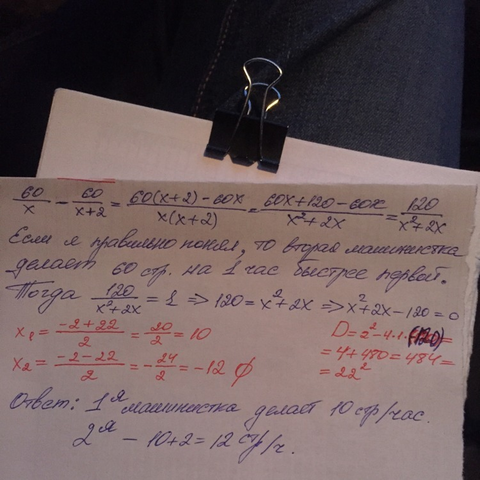 60/x - 60/x+2 = 60(x+2) - 60x/x(x+2) = 60x+120-60x/x²+2x = 120/x²+2x
Если я правильно понял, то вторая машинистка
делает 60 стр. на 1 час быстрее первой.
Тогда 120/x²+2x = 1 ⇒ 120 = x²+2x ⇒ x²+2x-120=0
x₁ = -2+22/2 = 20/2 = 10
D = 2²-4·1·(120) =
= 4+480 = 484 =
= 22²
x₂ = -2-22/2 = -24/2 = -12 ∅
Ответ: 1я машинистка делает 10 стр/час.
2я - 10+2 = 12 стр/ч.